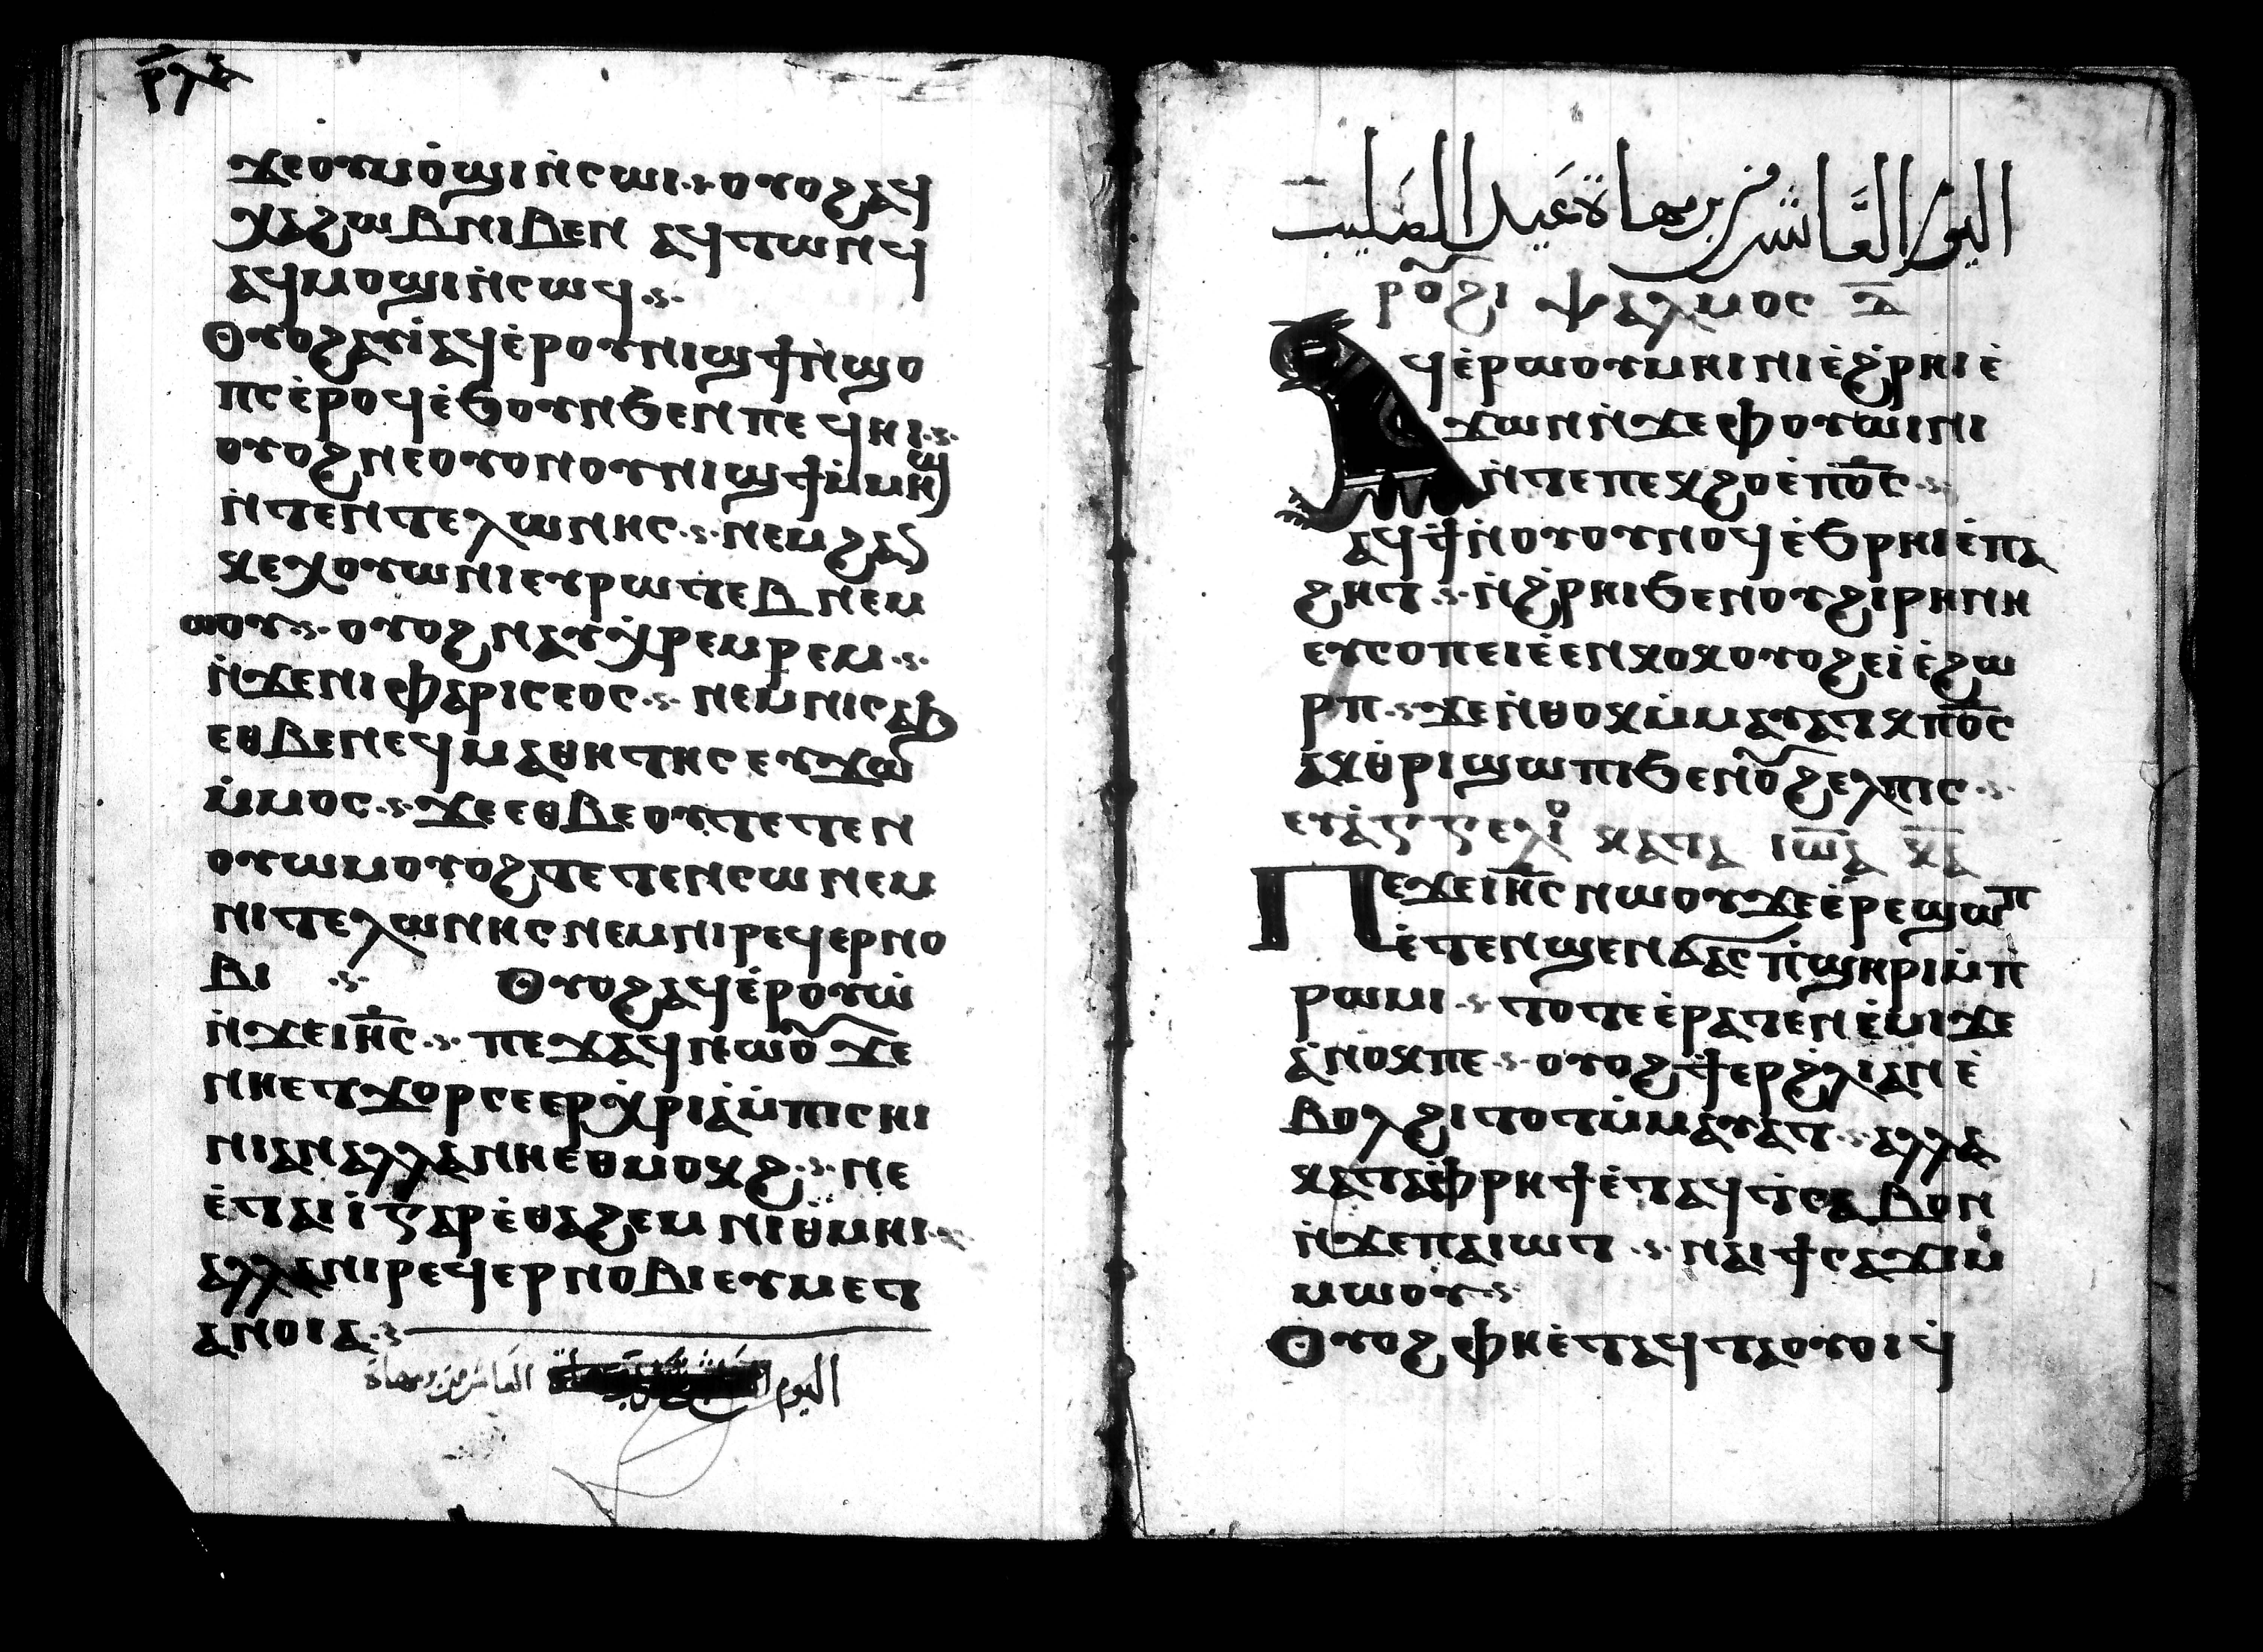 ⲣ̅ⲗ̅ⲁ̅
ϫⲉⲟⲩⲙⲟ̇ϣⲓⲛ̇ⲥⲱⲓ·⳽·ⲟⲩⲟϩⲁϥ
ⲭⲁϩⲱⲃⲛⲓⲃⲉⲛ ⲁϥⲧⲱⲛϥ
ⲁϥⲙⲟϣⲓⲛ̇ⲥⲱϥ·⳽·
Ⲟⲩⲟϩⲁⲩⲓ̇ⲁϥⲉ̇ⲣⲟⲩⲛⲓϣϯⲛ̇ϣⲟ
ⲡⲥⲉ̇ⲣⲟϥⲉ̇ϧⲟⲩⲛϧⲉⲛⲡⲉϥⲏⲓ·⳽·
ⲟⲩⲟϩⲛⲉⲟⲩⲟⲛⲟⲩⲛⲓϣϯⲙ̇ⲙⲏϣ
ⲛ̇ⲧⲉⲛⲧⲉⲗⲱⲛⲏⲥ·⳽·ⲛⲉⲙϩⲁⲛ
ⲕⲉⲭⲟⲩⲱⲛⲓⲉⲩⲣⲱⲧⲉⲃⲛⲉⲙ
ⲱⲟⲩ·⳽·ⲟⲩⲟϩⲛⲁⲩⲭ̇ⲣⲉⲙⲣⲉⲙ·⳽·
ⲛ̇ϫⲉⲛⲓⲫⲁⲣⲓⲥⲉⲟⲥ·⳽·ⲛⲉⲙⲛⲓⲥⲁϧ
ⲉⲑⲃⲉⲛⲉϥⲙⲁⲑⲏⲧⲏⲥⲉⲩϫⲱ
ⲙ̇ⲙⲟⲥ·⳽·ϫⲉⲉⲑⲃⲉⲟⲩⲧⲉⲧⲉⲛ
ⲟⲩⲱⲙⲟⲩⲟϩⲧⲉⲧⲉⲛⲥⲱⲛⲉⲙ
ⲛⲓⲧⲉⲗⲱⲛⲏⲥⲛⲉⲙⲛⲓⲣⲉϥⲉⲣⲛⲟ
ⲃⲓ ·⳽· Ⲟⲩⲟϩⲁϥⲉ̇ⲣⲟⲩⲱ̇
ⲛ̇ϫⲉⲓⲏ̅ⲥ·⳽·ⲡⲉϫⲁϥⲛⲱⲟⲩϫⲉ
ⲛⲏⲉⲧϫⲟⲣⲥⲉⲉⲣⲭ̇ⲣⲓⲁⲙ̇ⲡⲓⲥⲏⲓ
ⲛⲓⲁⲛⲁⲗⲗⲁⲛⲏⲉⲑⲙⲟⲕϩ·⳽·ⲛⲉ
ⲉ̇ⲧⲁⲓⲓ̇ⲅⲁⲣⲉ̇ⲑⲁϩⲉⲙⲛⲓⲑ̇ⲙⲏⲓ·⳽·
ⲁⲗⲗⲁⲛⲓⲣⲉϥⲉⲣⲛⲟⲃⲓⲉⲩⲙⲉⲧ
ⲁⲛⲟⲓⲁ·⳽·
اليوم العاشر من برمهاة
اليوم العَاشر من برمهاة عَيد الصَليب
ⲣⲟⲩϩⲓ ⲯⲁⲗⲙⲟⲥ ⲇ̅
Ⲁϥⲉ̇ⲣⲱⲟⲩⲙⲏⲓⲛⲓⲉ̇ϩ̇ⲣⲏⲓⲉ̇
ϫⲱⲛⲛ̇ϫⲉⲫⲟⲩⲱⲓⲛⲓ
ⲛ̇ⲧⲉⲡⲉⲕϩⲟⲉ̇ⲡⲟ̅ⲥ·⳽·
ⲁϥϯⲛ̇ⲟⲩⲟⲩⲛⲟϥⲉ̇ϧⲣⲏⲓⲉ̇ⲡⲁ
ϩⲏⲧ·⳽·ⲛ̇ϩ̇ⲣⲏⲓϧⲉⲛⲟⲩϩⲓⲣⲏⲛⲏ
ⲉⲩⲥⲟⲡⲉⲓⲉ̇ⲉⲛⲕⲟⲕⲟⲩⲟϩⲉⲓ̇ⲉ̇ϩⲱ
ⲣⲡ·⳽·ϫⲉⲛ̇ⲑⲟⲕⲙ̇ⲙⲁⲩⲁⲧⲕⲡⲟ̅ⲥ
ⲁⲕⲑ̇ⲣⲓϣⲱⲡⲓϧⲉⲛⲟⲩϩⲉⲗⲡⲓⲥ·⳽·
ⲉⲩⲁ̇ⲅⲅⲉⲗⲓⲟ ⲕⲁⲧⲁ ⲓⲱ̅ⲁ ⲕ̅ⲁ̅
Ⲡⲉϫⲉⲓⲏ̅ⲥⲛⲱⲟⲩϫⲉⲉ̇ⲣⲉϣⲱⲡ
ⲉ̇ⲧⲉⲛϣⲉⲛϭⲁⲥⲡ̇ϣⲏⲣⲓⲙ̇ⲡ
ⲣⲱⲙⲓ·⳽·ⲧⲟⲧⲉⲉ̇ⲣⲁⲧⲉⲛⲉ̇ⲙⲓϫⲉ
ⲁ̇ⲛⲟⲕⲡⲉ·⳽·ⲟⲩⲟϩϯⲉⲣϩ̇ⲗⲓⲁⲛⲉ̇
ⲃⲟⲗϩⲓⲧⲟⲧⲙ̇ⲙⲁⲩⲁⲧ·⳽·ⲁⲗⲗⲁ
ⲕⲁⲧⲁⲫ̇ⲣⲏϯⲉ̇ⲧⲁϥⲧⲥⲁⲃⲟⲛ
ⲛ̇ϫⲉⲡⲁⲓⲱⲧ·⳽·ⲛⲁⲓϯⲥⲁϫⲓⲙ̇
ⲙⲱⲟⲩ·⳽·
Ⲟⲩⲟϩⲫⲏⲉ̇ⲧⲁϥⲧⲁⲟⲩⲟⲓϥ̇